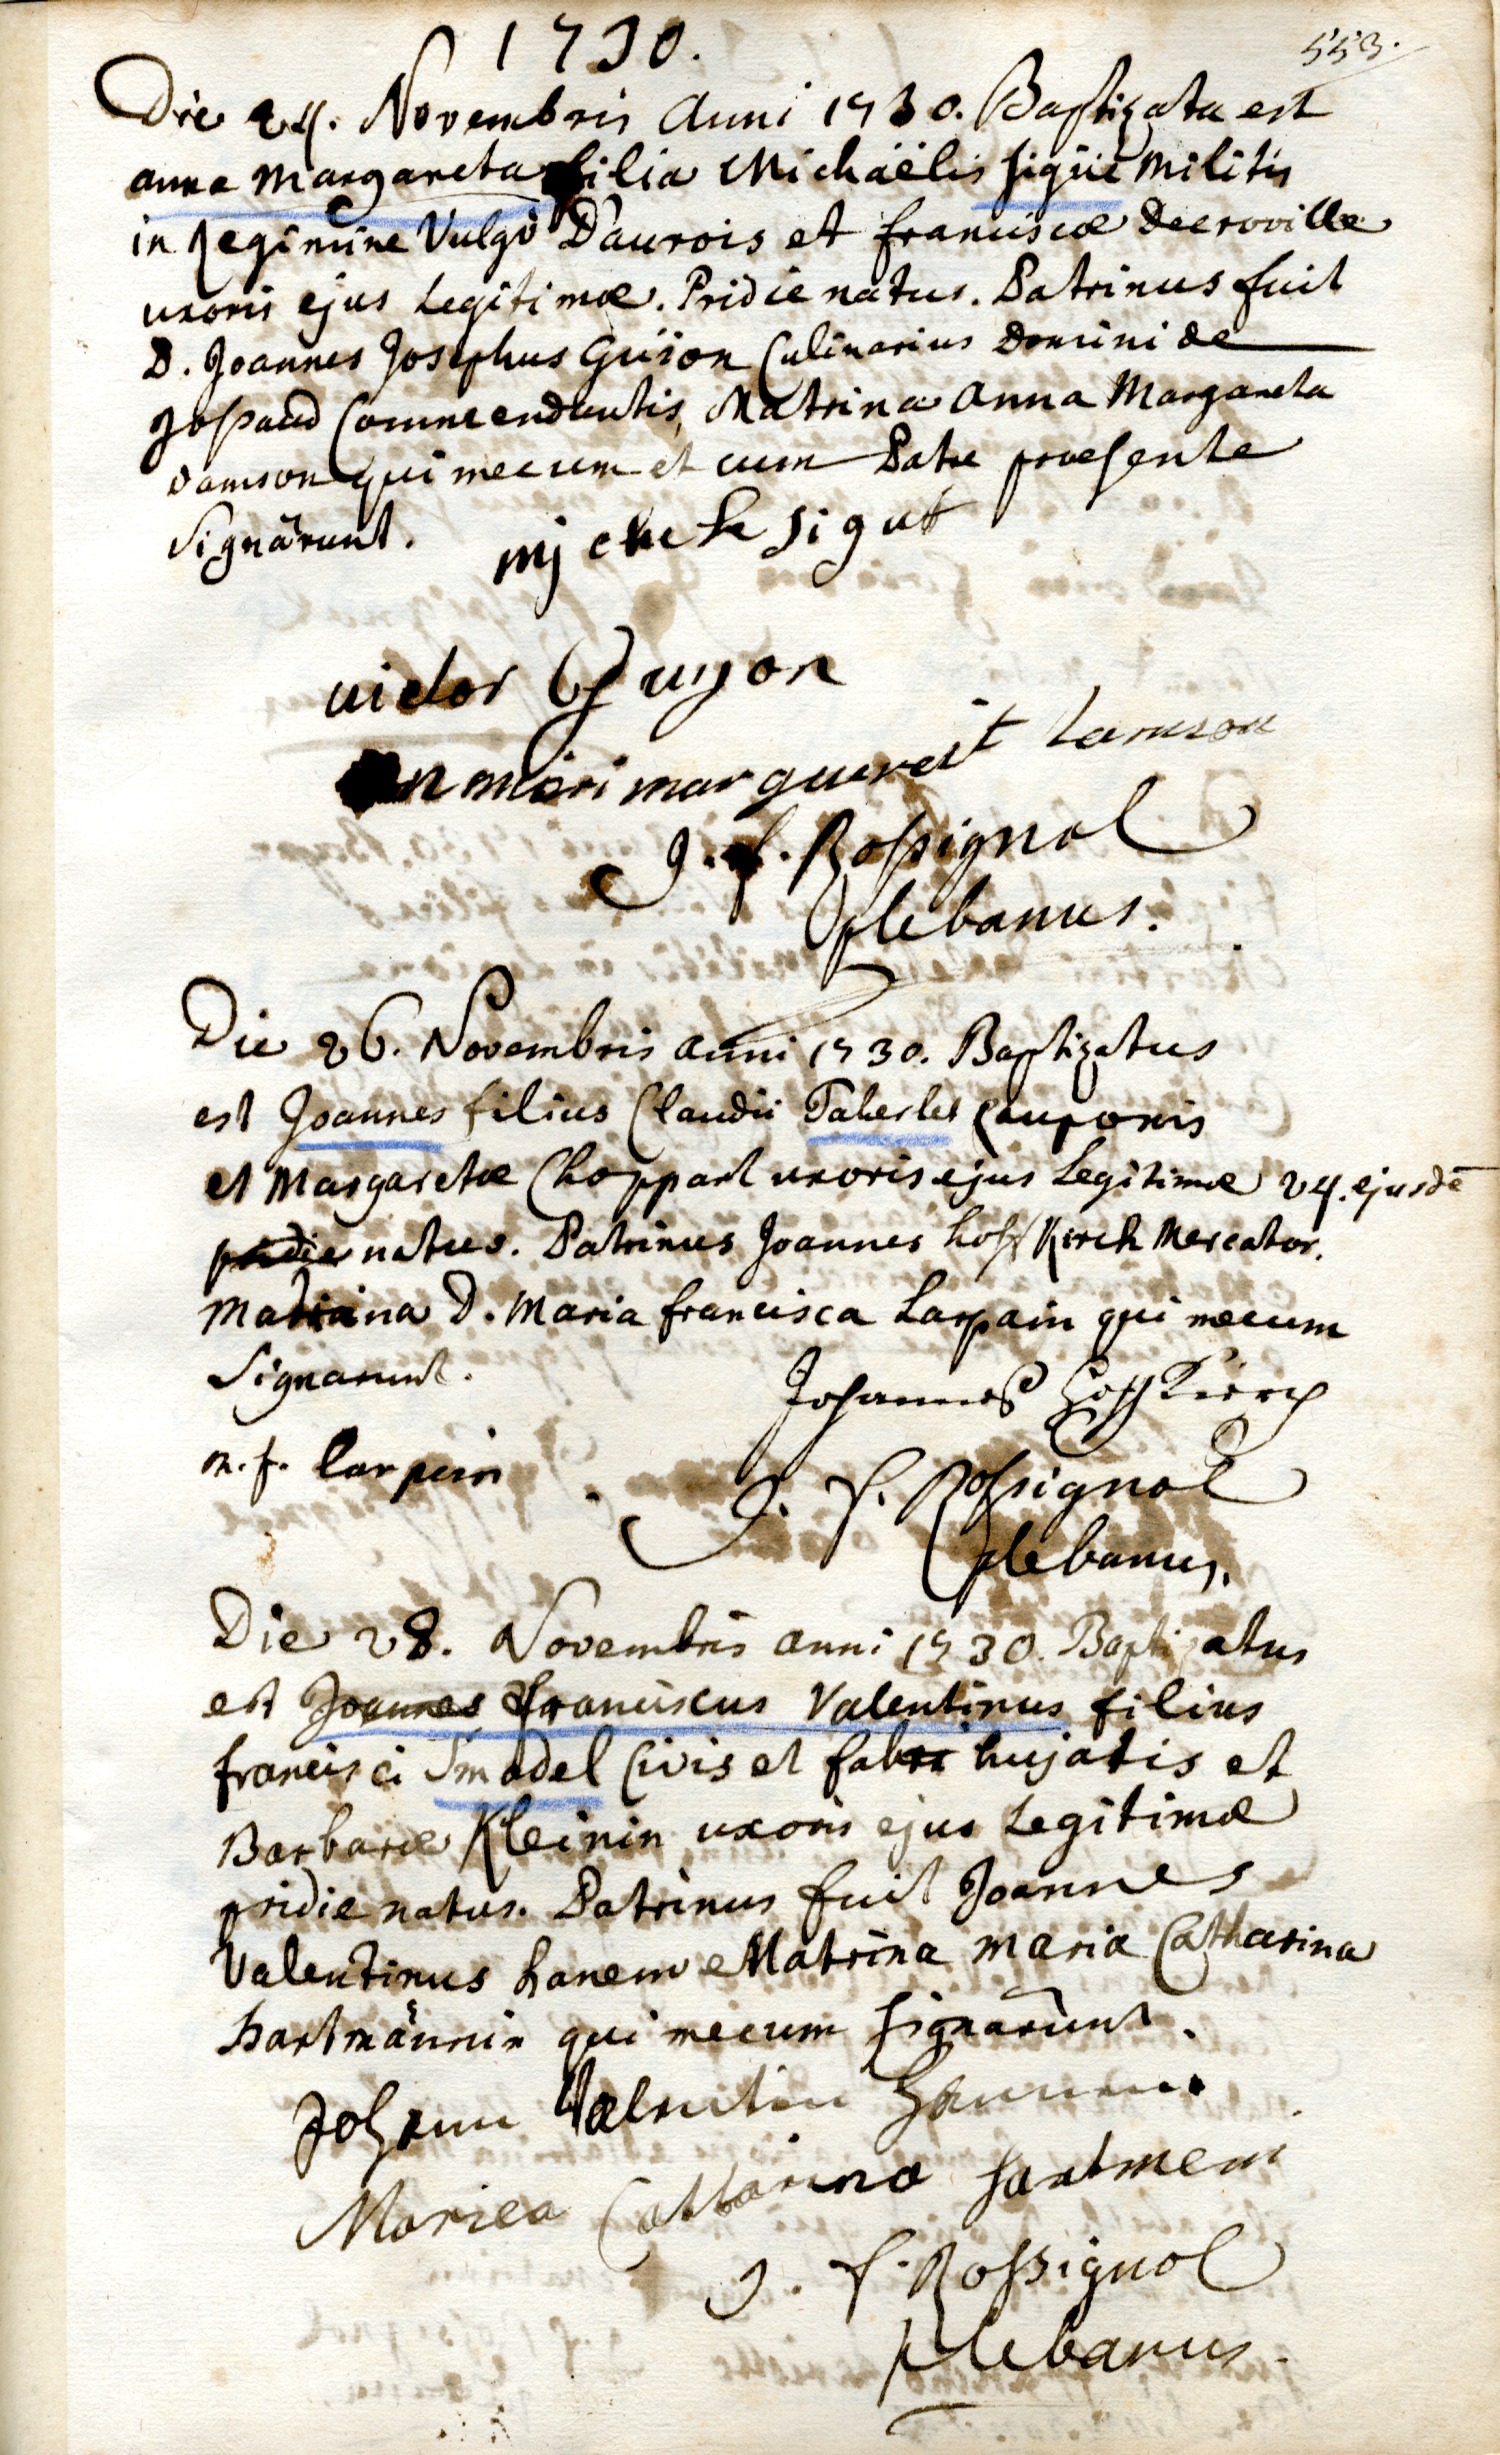 1730.
553.
Die 24. Novembris Anni 1730. Baptizata est
anna Margareta filia Michaëlis sigüe Militis
in Regimine Vulgò Daurois et franciscæ Decroville
uxoris ejus Legitimæ. Pridie natus. Patrinus fuit
D. Joannes Josephus Guïon Culinarius Domini de
Jossaud Commendantis, Matrina Anna Margareta
Damson qui mecum et cum Patre præsente
signârunt.
sigut
victor Guyon
marguerit Lamson
J. f. Rossignol
plebanus.
Die 26. Novembris anni 1730. Baptizatus
est Joannes filius Claudii Tabesles Cauponis
et Margaretæ Choppart uxoris ejus Legitimæ 24. ejusdē
pridie natus. Patrinus Joannes hoff Kirch Mercator.
Matrina D. Maria francisca Larpain qui mecum
Signarunt.
Johannes Hoffkirch
m. f. larpin
J. f. Rossignol
plebanus.
Die 28. Novembris anni 1730. Baptizatus
est Joannes franciscus Valentinus filius
francisci Smadel Civis et fabri hujatis et
Barbaræ Kleinin uxoris ejus Legitimæ
pridie natus. Patrinus fuit Joannes
Valentinus hanem Matrina Maria Catharina
hartmännin qui mecum signarunt.
Johann Valentin
Mariea Cattarina hartmem
J. f. Rossignol
plebanus.